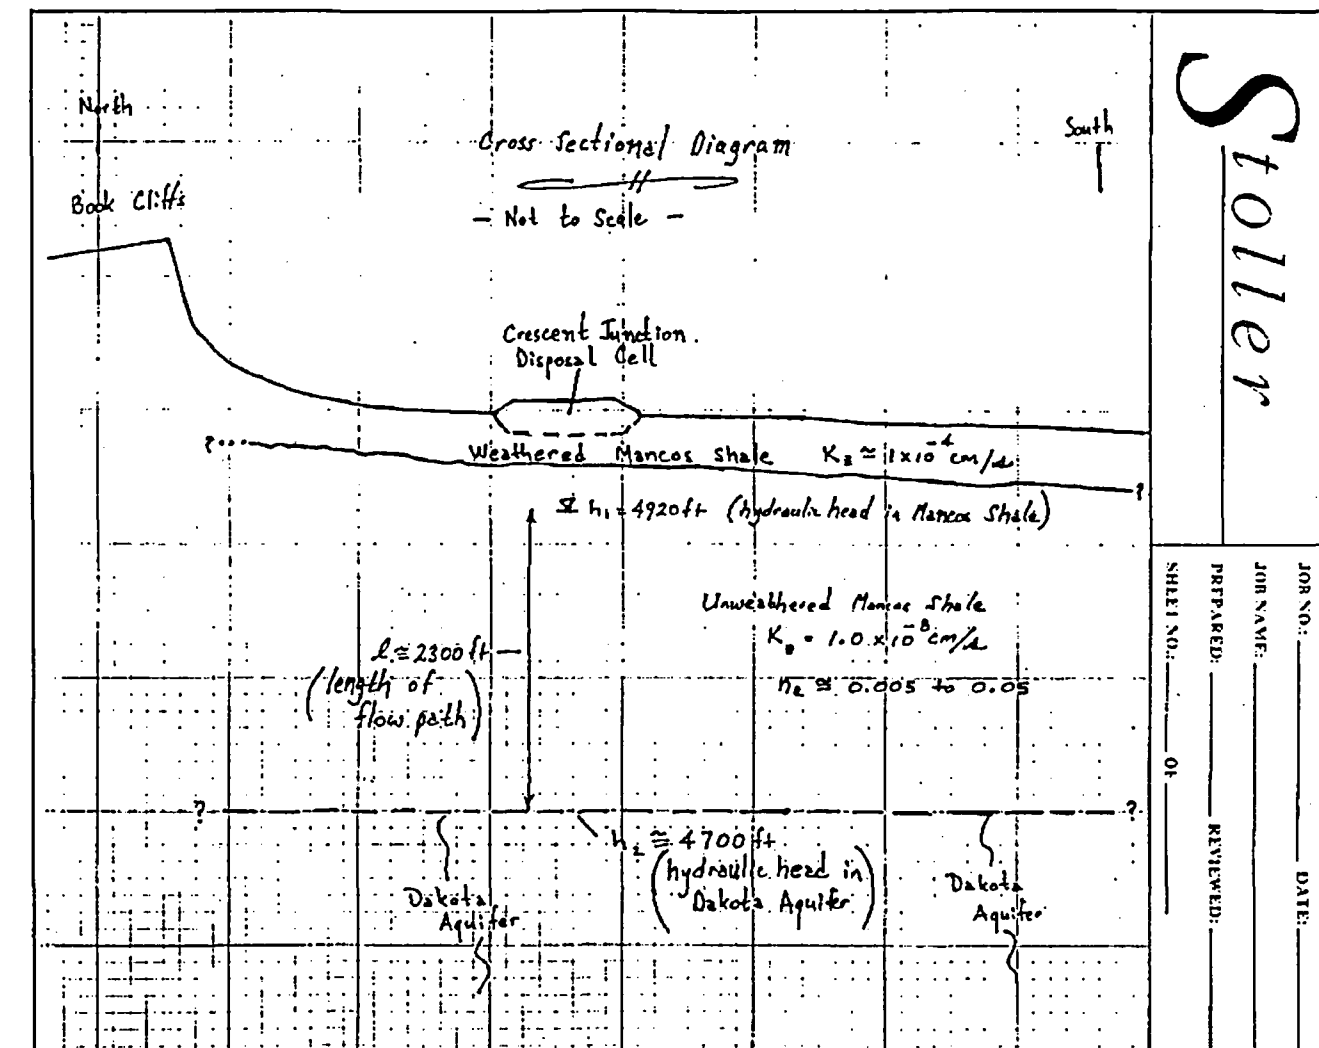 North
South
Cross Sectional Diagram
- Not to Scale -
Book Cliffs
Crescent Junction
Disposal Cell
?
Weathered Mancos Shale K ≅ 1x10⁻⁴ cm/s
?
h₁ = 4920 ft (hydraulic head in Mancos Shale)
Unweathered Mancos Shale
K = 1.0 x 10⁻⁸ cm/s
nₑ ≅ 0.005 to 0.05
l ≅ 2300 ft
(length of
flow path)
?
?
h₂ ≅ 4700 ft
(hydraulic head in
Dakota Aquifer)
Dakota
Aquifer
Dakota
Aquifer
Stoller
JOB NO.: DATE:
JOB NAME:
PREPARED: REVIEWED:
SHEET NO.: OF